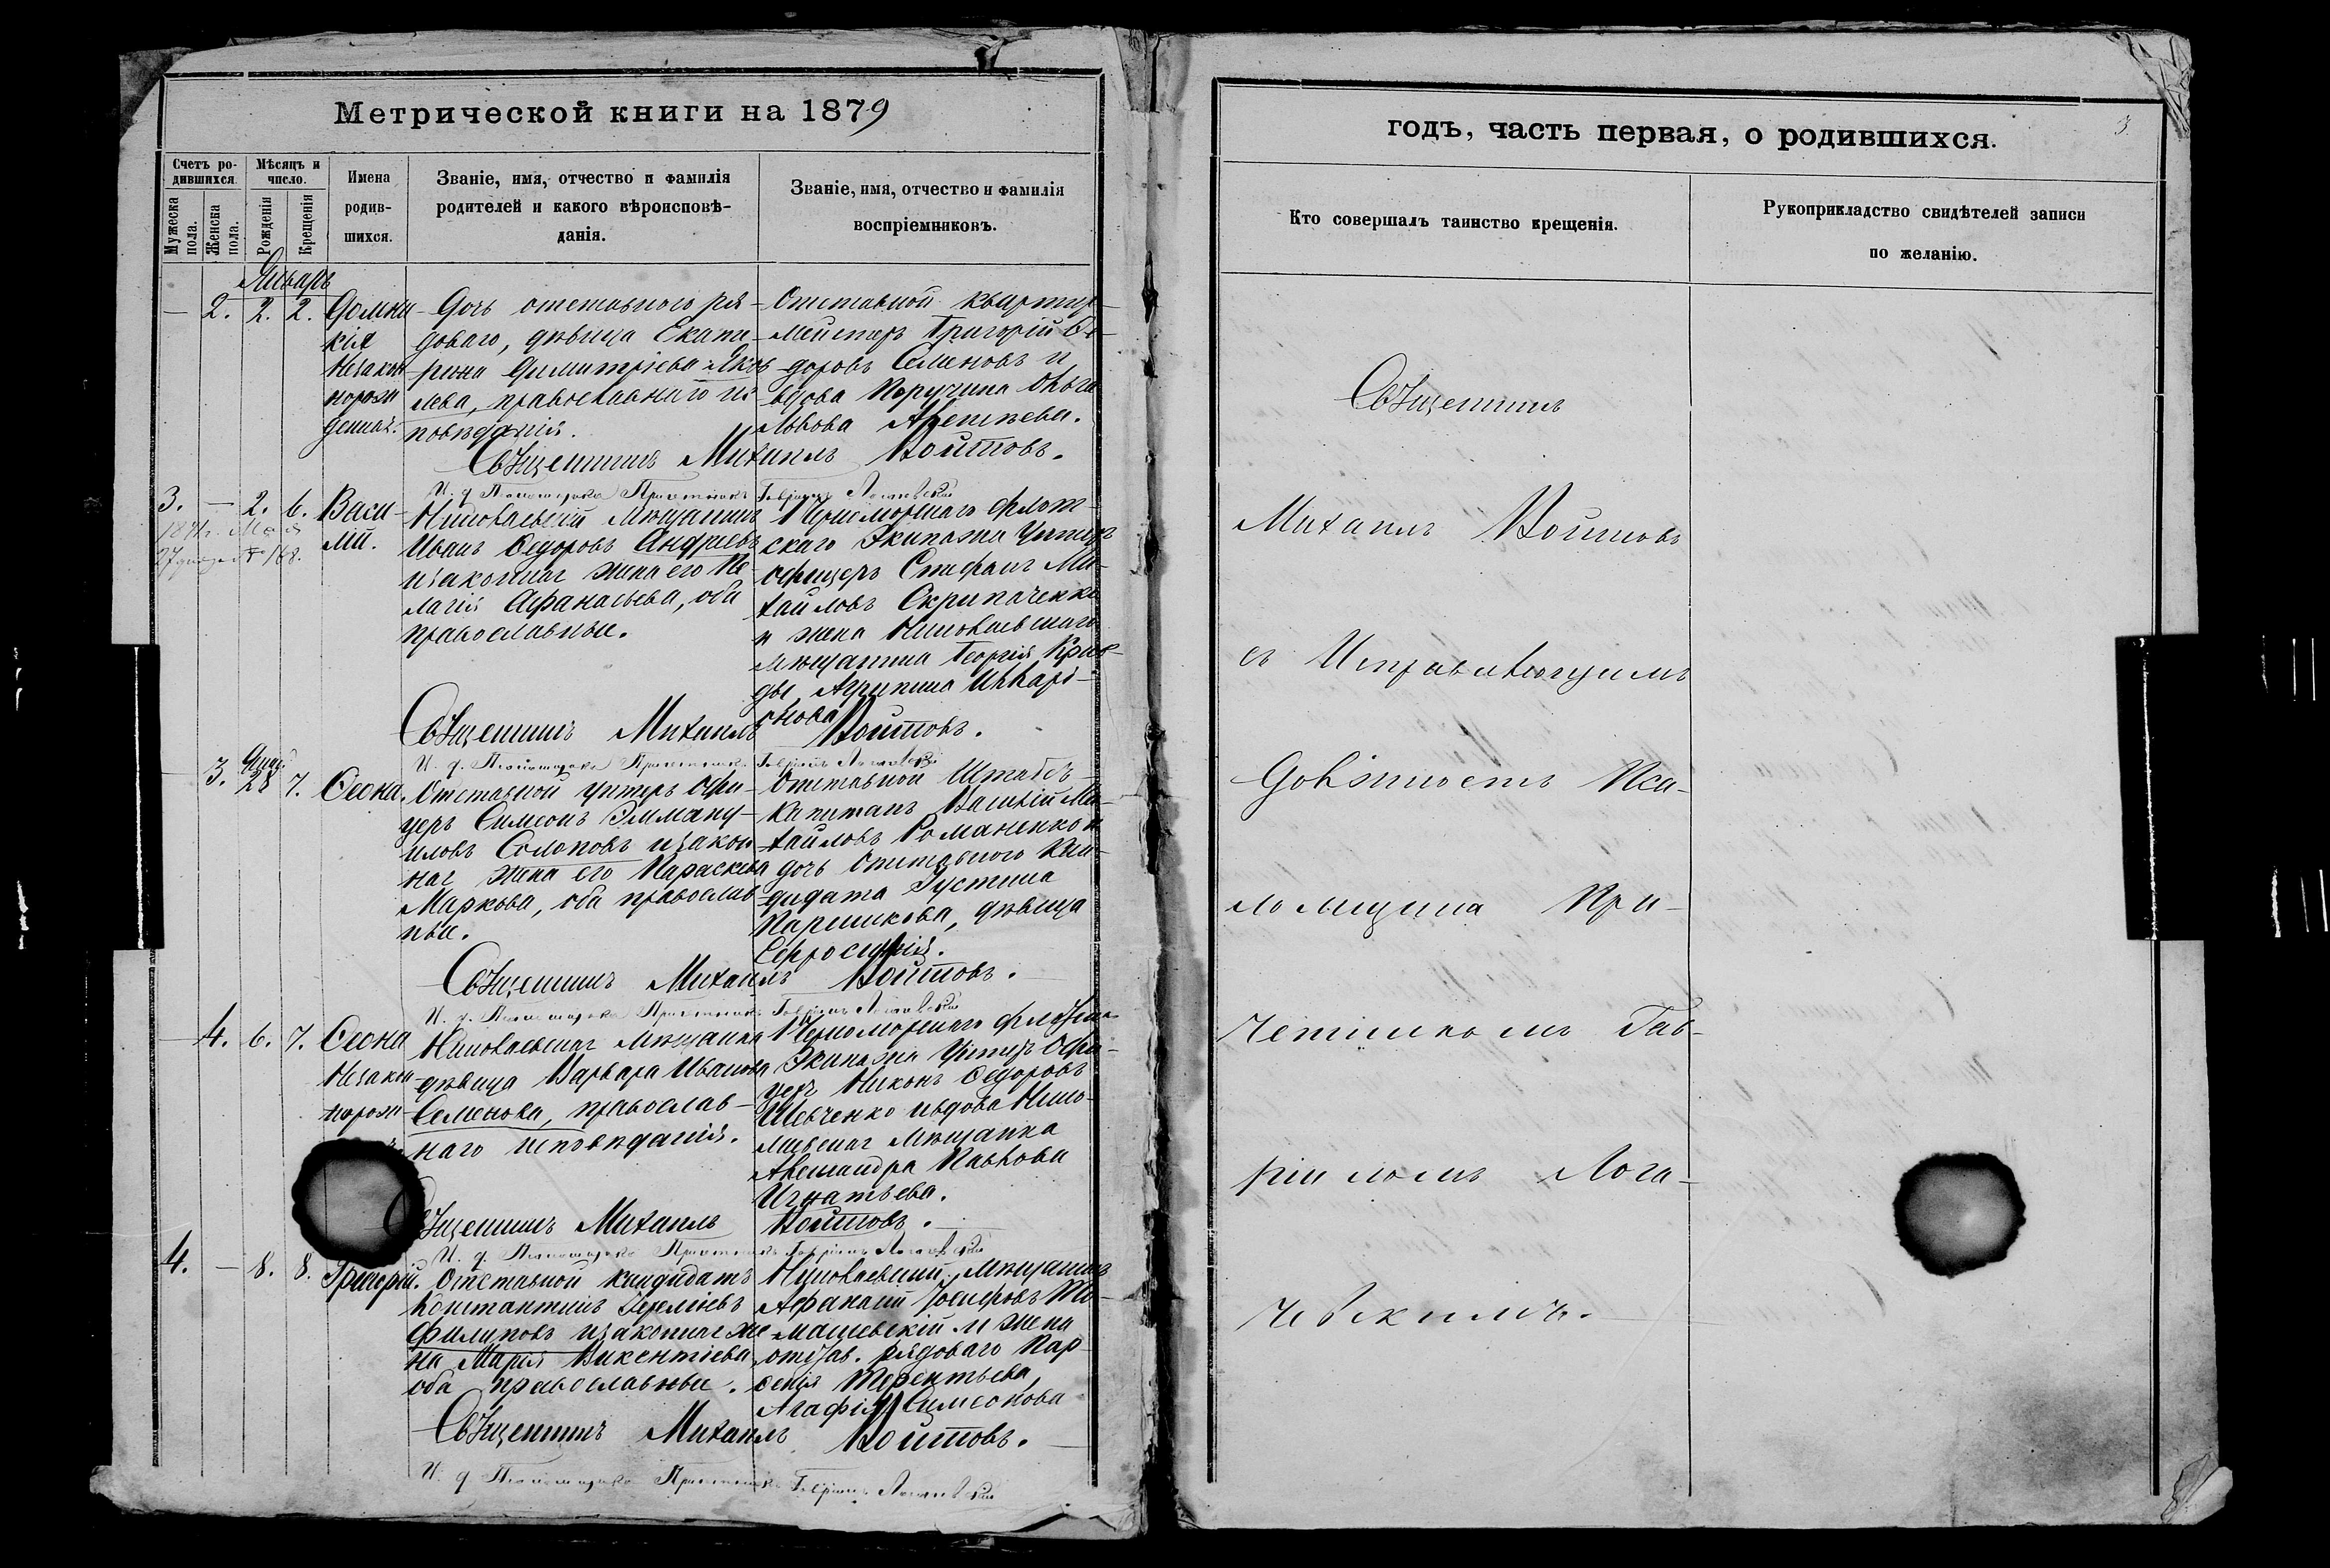 Метрической книги на 1879
Счетъ родившихся.
Мужеска пола.
Женска пола.
Мѣсяцъ и число.
Рожденія
Крещенія
Имена родившихся.
Званіе, имя, отчество и фамилія
родителей и какого вѣроисповѣ-
данія.
Званіе, имя, отчество и фамилія
воспріемниковъ.
Январь
— 2. 2. 2. Домни-
кія
Незакон-
норож-
денная.
Дочь отставного ря-
доваго, дѣвица Екате-
рина Димитріева Яков-
лева, православнаго ис-
повѣданія.
Отставной квартир-
мейстеръ Григорій Ѳе-
доровъ Семеновъ и
вдова Поручика Ольга
Львова
Священникъ Михаилъ Войтовъ.
И. д. Пономаря Причетникъ Гавріилъ
3. — 2. 6. Васи-
лій.
Николаевскій мѣщанинъ
Иванъ Ѳедоровъ Андреевъ
и законная жена его Пе-
лагія Афанасьева, оба
православные.
Черноморскаго флот-
скаго Экипажа Унтеръ
офицеръ Стефанъ Ми-
хайловъ Скрипаченко
и жена Николаевскаго
мѣщанина Георгія
Агрипина Илларі-
онова
Священникъ Михаилъ Войтовъ.
И. д. Пономаря Причетникъ Гавріилъ
— 3. 28 7. Ѳеона.
Отставной унтеръ офи-
церъ Симеонъ Эмману-
иловъ Солоповъ и закон-
ная жена его Параскева
Маркова, оба православ-
ные.
Отставной Штабсъ-
Капитанъ Василій Ми-
хайловъ Романенко и
дочь Отставного Кан-
дидата Іустина
Паршикова, дѣвица
Евфросинія.
Священникъ Михаилъ Войтовъ.
И. д. Пономаря Причетникъ Гавріилъ
— 4. 6. 7. Ѳеона
Незакон-
норож-
Николаевская мѣщанка
дѣвица Варвара Иванова
Семенова, православ-
наго исповѣданія.
Черноморскаго флотскаго
Экипажа Унтеръ Офи-
церъ Никонъ Ѳедоровъ
Шевченко и вдова Нико-
лаевская мѣщанка
Александра Павлова
Игнатьева.
Священникъ Михаилъ Войтовъ.
И. д. Пономаря Причетникъ Гавріилъ
4. — 8. 8. Григорій.
Отставной кандидатъ
Константинъ Іереміевъ
Филиповъ и законная же-
на Марія Викентіева,
оба православные.
Николаевскій мѣщанинъ
Афанасій Іосифовъ То-
машевскій и жена
отстав. рядоваго Пар-
ѳенія Терентьева,
Агафія Симеонова
Священникъ Михаилъ Войтовъ.
И. д. Пономаря Причетникъ Гавріилъ
годъ, часть первая, о родившихся.
3.
Кто совершалъ таинство крещенія.
Рукоприкладство свидѣтелей записи
по желанію.
Священникъ
Михаилъ Войтовъ
съ Исправляющимъ
Должность Пса-
ломщика При-
четникомъ Гав-
ріиломъ